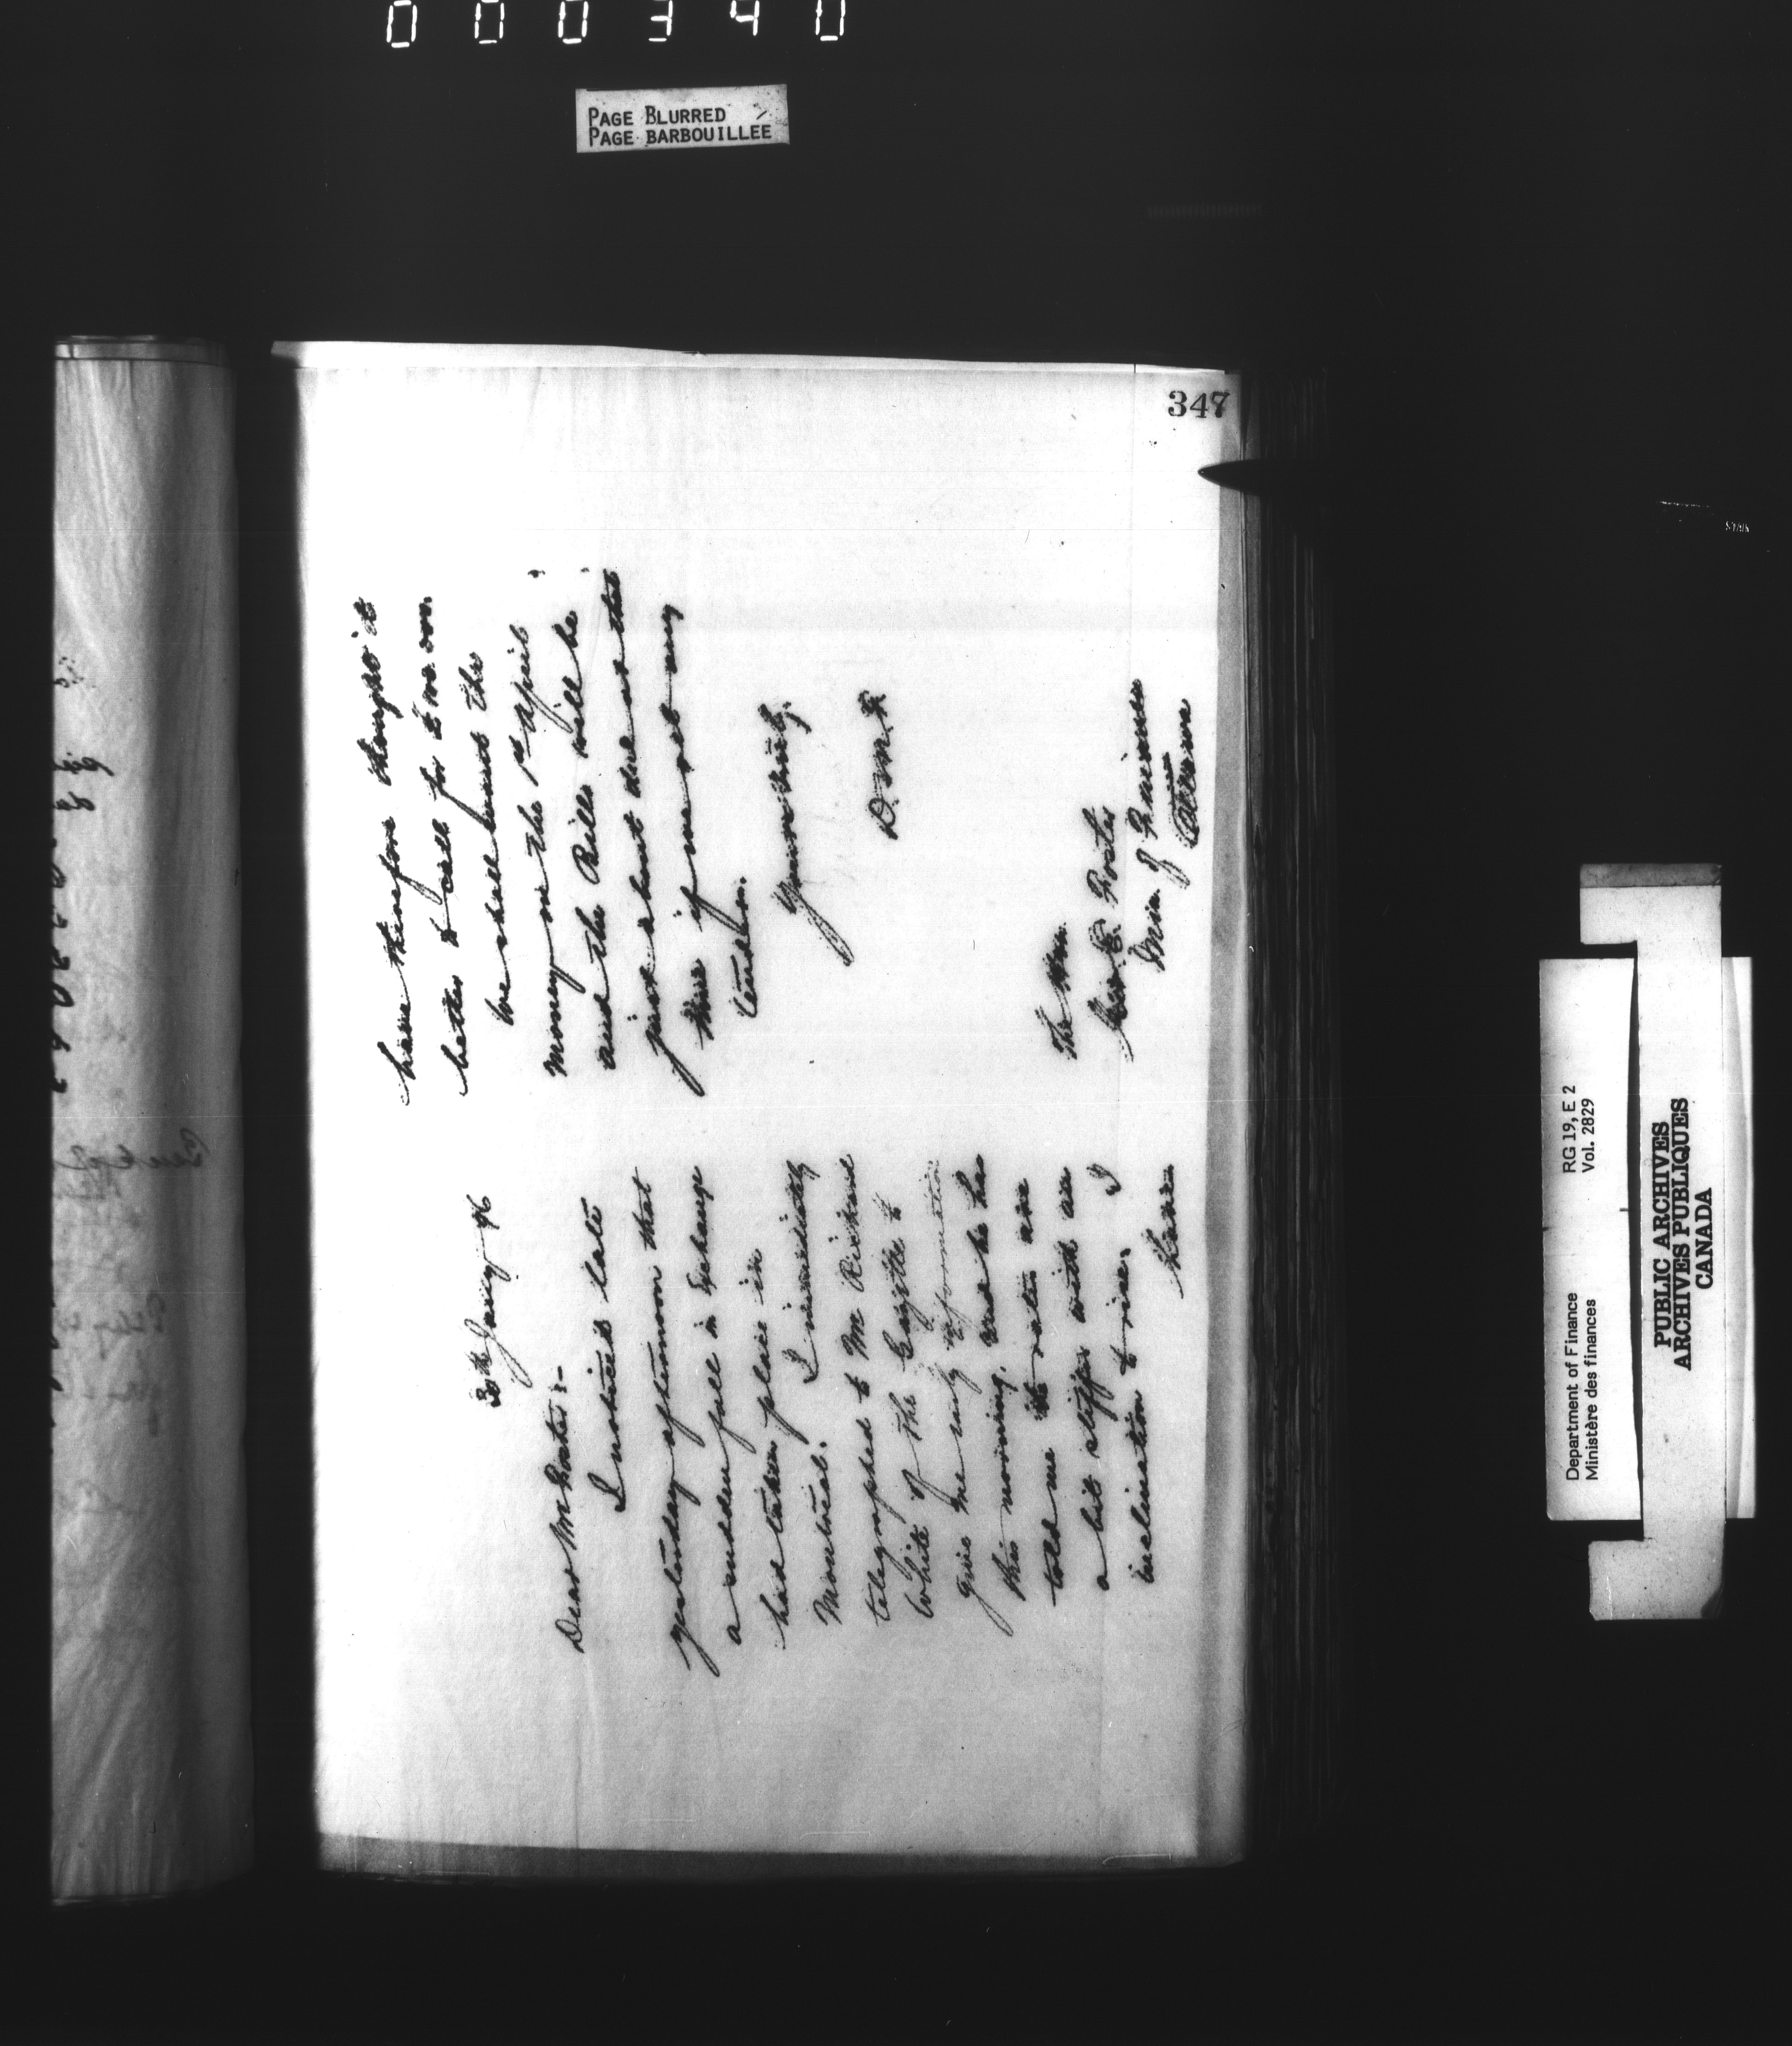 000340
PAGE BLURRED
PAGE BARBOUILLEE
347
30th Jany 96
Dear Mr Foster:-
I noticed late
yesterday afternoon that
a sudden fall in Exchange
had taken place in
Montreal. I immediately
telegraphed to Mr Richard
White of the Gazette to
give me early information
this morning. And he has
told me the rates are
a bit stiffer with an
inclination to rise. I
have
have therefore thought it
better to call for tomorrow.
We shall want the
money on the 1st April
and the Bills will be
just about due at that
time if we get any
tenders.
Yours truly,
The Hon.
Geo. E. Foster
Min. of Finance
Ottawa
Department of Finance
Ministère des finances
RG 19, E 2
Vol. 2829
PUBLIC ARCHIVES
ARCHIVES PUBLIQUES
CANADA